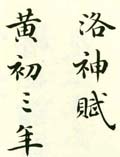 洛神賦
黃初三年